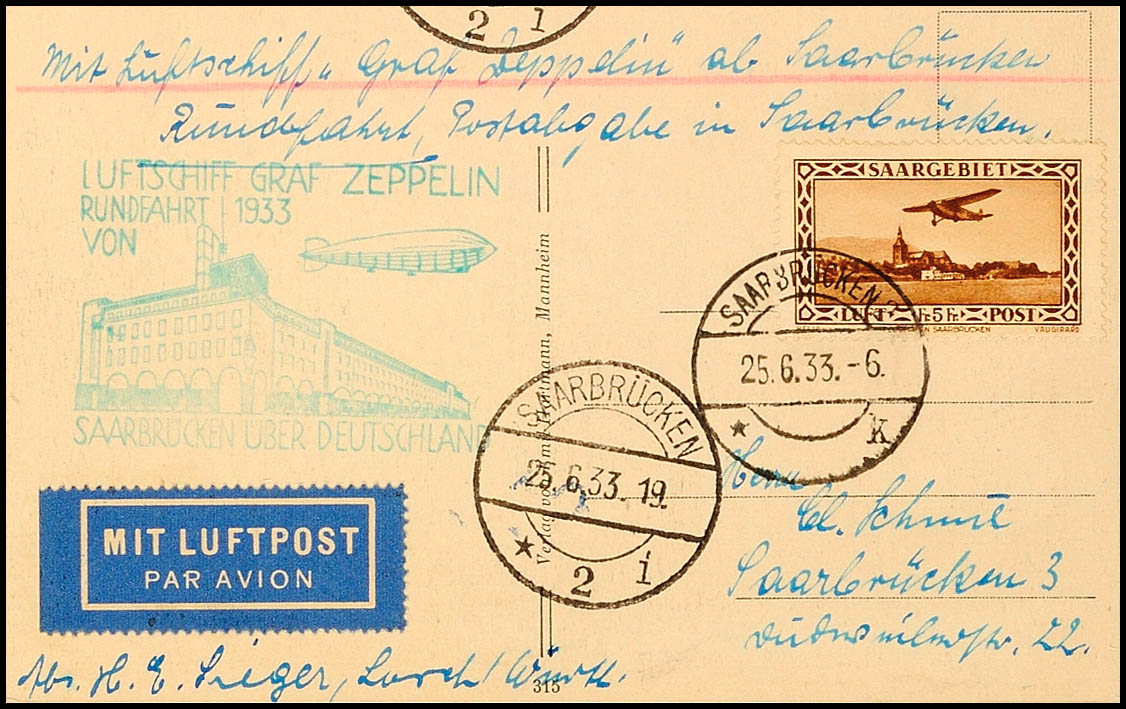 2 i
Mit Luftschiff „Graf Zeppelin“ ab Saarbrücken
Rundfahrt, Postabgabe in Saarbrücken.
LUFTSCHIFF GRAF ZEPPELIN
RUNDFAHRT 1933
VON
SAARBRÜCKEN ÜBER DEUTSCHLAND
SAARGEBIET
LUFT Fr. 5 Fr. POST
SAARBRÜCKEN VAUGIRARD
SAARBRÜCKEN 2
25.6.33.-6.
★ K
SAARBRÜCKEN
25.6.33.19.
★ 2 i
Mannheim
MIT LUFTPOST
PAR AVION
Herrn
Cl.
Saarbrücken 3
Dudweilerstr. 22.
Abs. H. E. Sieger, Lorch / Württ.
315